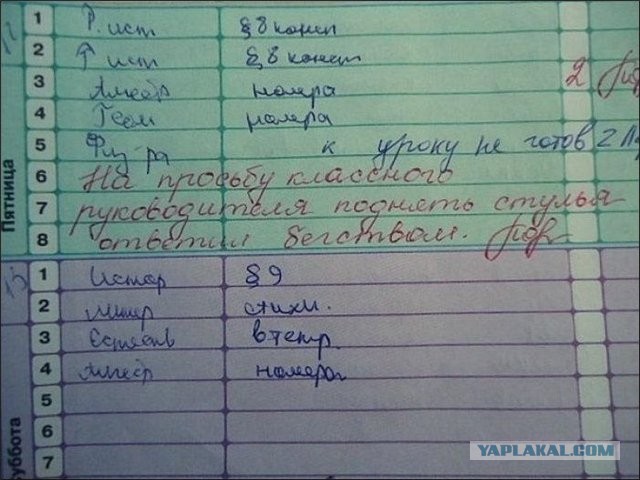 1 Р. ист § 8 консп
2 ист § 8 консп
3 Алгебр номера 2
4 Геом номера
5 Физ ра к уроку не готов 2
6 На просьбу классного
7 руководителя поднять стулья
8 ответил бегством.
Пятница
1 Истор § 9
2 Литер стихи.
3 Естеств в тетр
4 Алгебр номера
5
6
7
Суббота
YAPLAKAL.COM